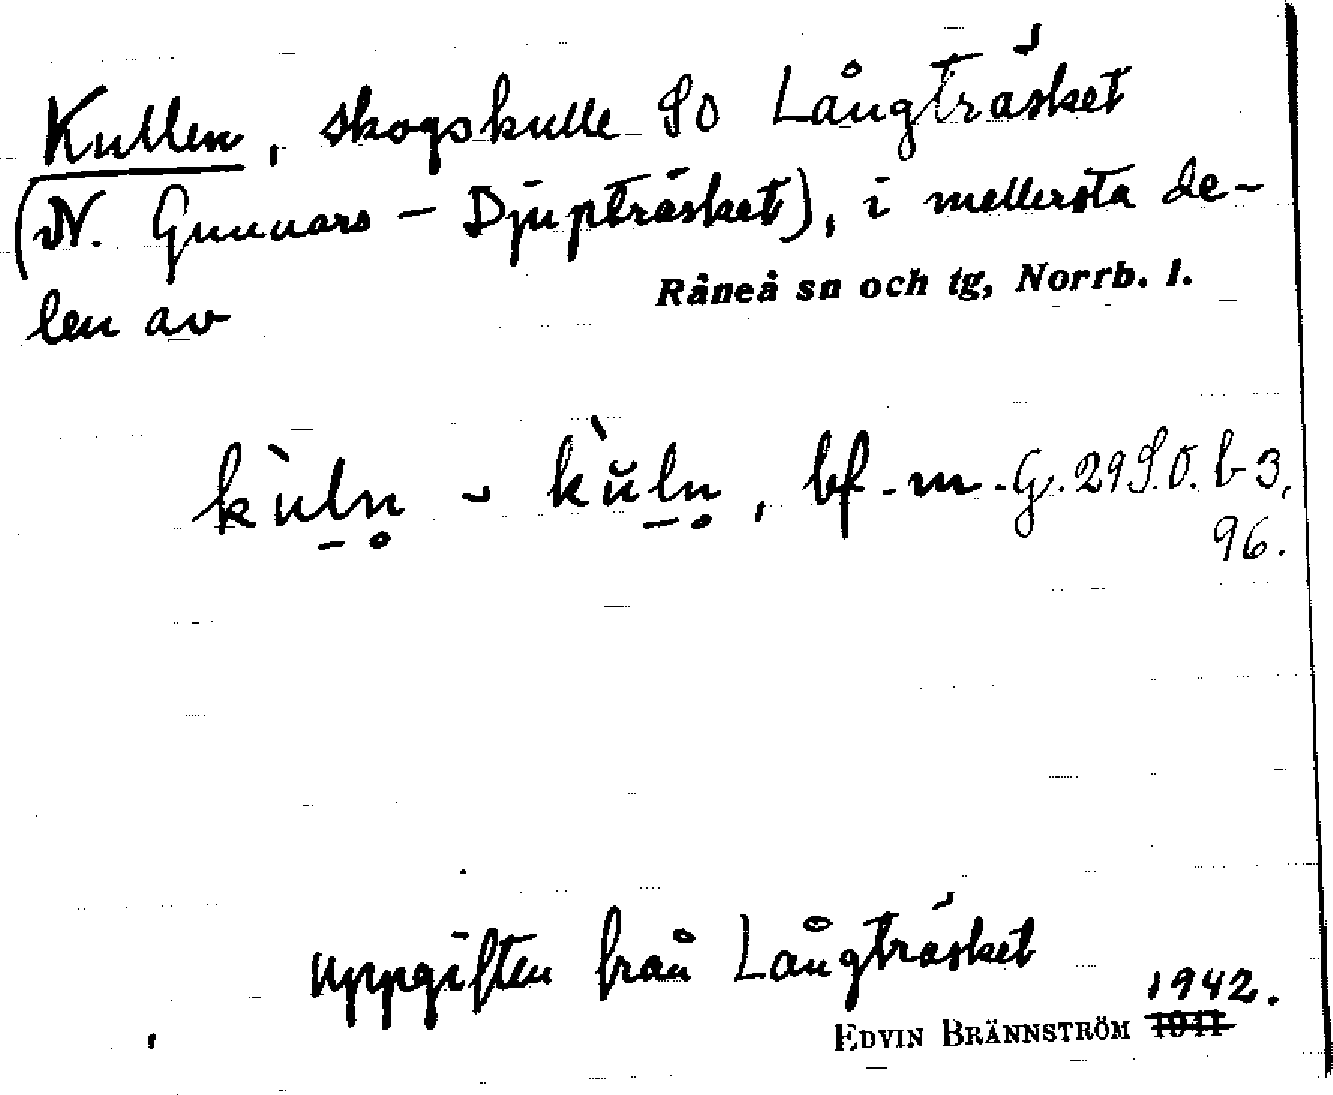 Kullen, skogskulle SO Långträsket
(N. Gunnars-Djupträsket), i mellersta de-
len av Råneå sn och tg, Norrb. l.
kùln̥ - kùln̥, bf. m. G. 29 S.O. b-3,
96.
uppgiften från Långträsket
1942.
EDVIN BRÄNNSTRÖM 1941